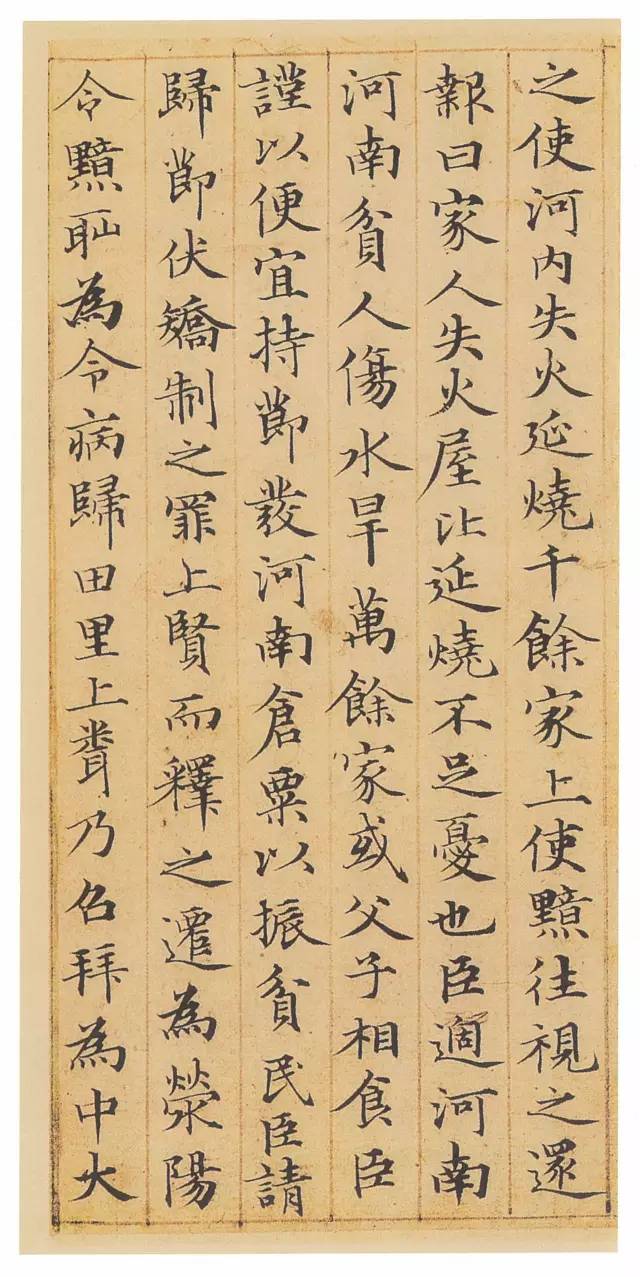 之使河內失火延燒千餘家上使黯往視之還
報曰家人失火屋比延燒不足憂也臣適河南
河南貧人傷水旱萬餘家或父子相食臣
謹以便宜持節發河南倉粟以振貧民臣請
歸節伏矯制之罪上賢而釋之遷為滎陽
令黯耻為令病歸田里上聞乃召拜為中大